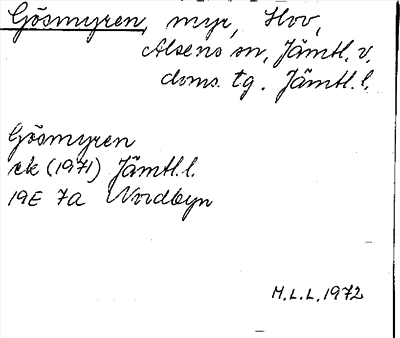 Gösmyren, myr, Hov,
Alsens sn, Jämtl. v.
doms. tg. Jämtl. l.
Gösmyren
ek (1971) Jämtl. l.
19E 7a Nordbyn
M.L.L. 1972